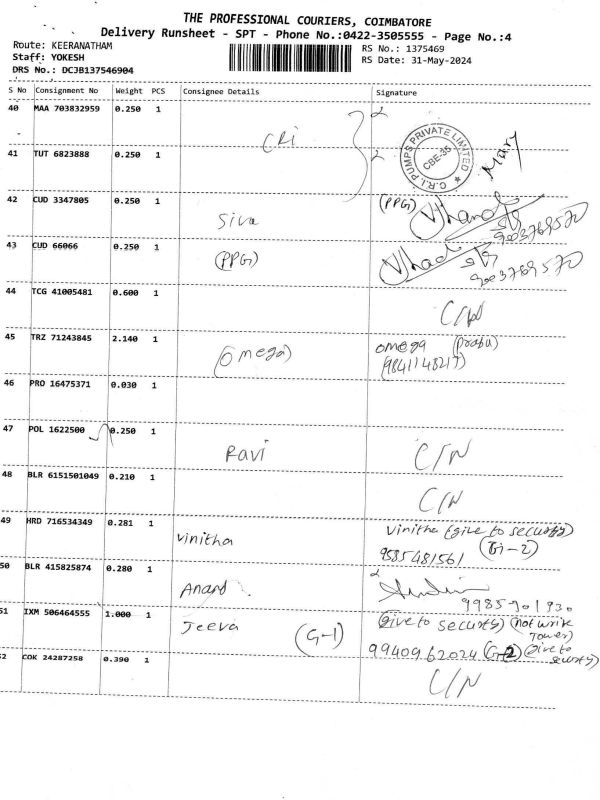 THE PROFESSIONAL COURIERS, COIMBATORE
Delivery Runsheet - SPT - Phone No.:0422-3505555 - Page No.:4
Route: KEERANATHAM
RS No.: 1375469
Staff: YOKESH
RS Date: 31-May-2024
DRS No.: DCJB137546904
S No Consignment No Weight PCS Consignee Details Signature
40 MAA 703832959 0.250 1
CRi
41 TUT 6823888 0.250 1
C.R.I. PUMPS PRIVATE LIMITED
CBE-35
Mary
42 CUD 3347805 0.250 1 (PPG)
Siva
9003769570
43 CUD 66066 0.250 1
(PPG)
9003769570
44 TCG 41005481 0.600 1
C/N
45 TRZ 71243845 2.140 1 omega (Prabu)
(Omega) (9841148217)
46 PRO 16475371 0.030 1
47 POL 1622500 0.250 1
Ravi C/N
48 BLR 6151501049 0.210 1
C/N
49 HRD 716534349 0.281 1 Vinitha (give to security)
Vinitha 9585481561 (G-2)
50 BLR 415825874 0.280 1
Anand
51 IXM 506464555 1.000 1 (give to security) (not write
Jeeva (G-1) Tower)
994096 2024 (G-2) (give to
52 COK 24287258 0.390 1 security)
C/N